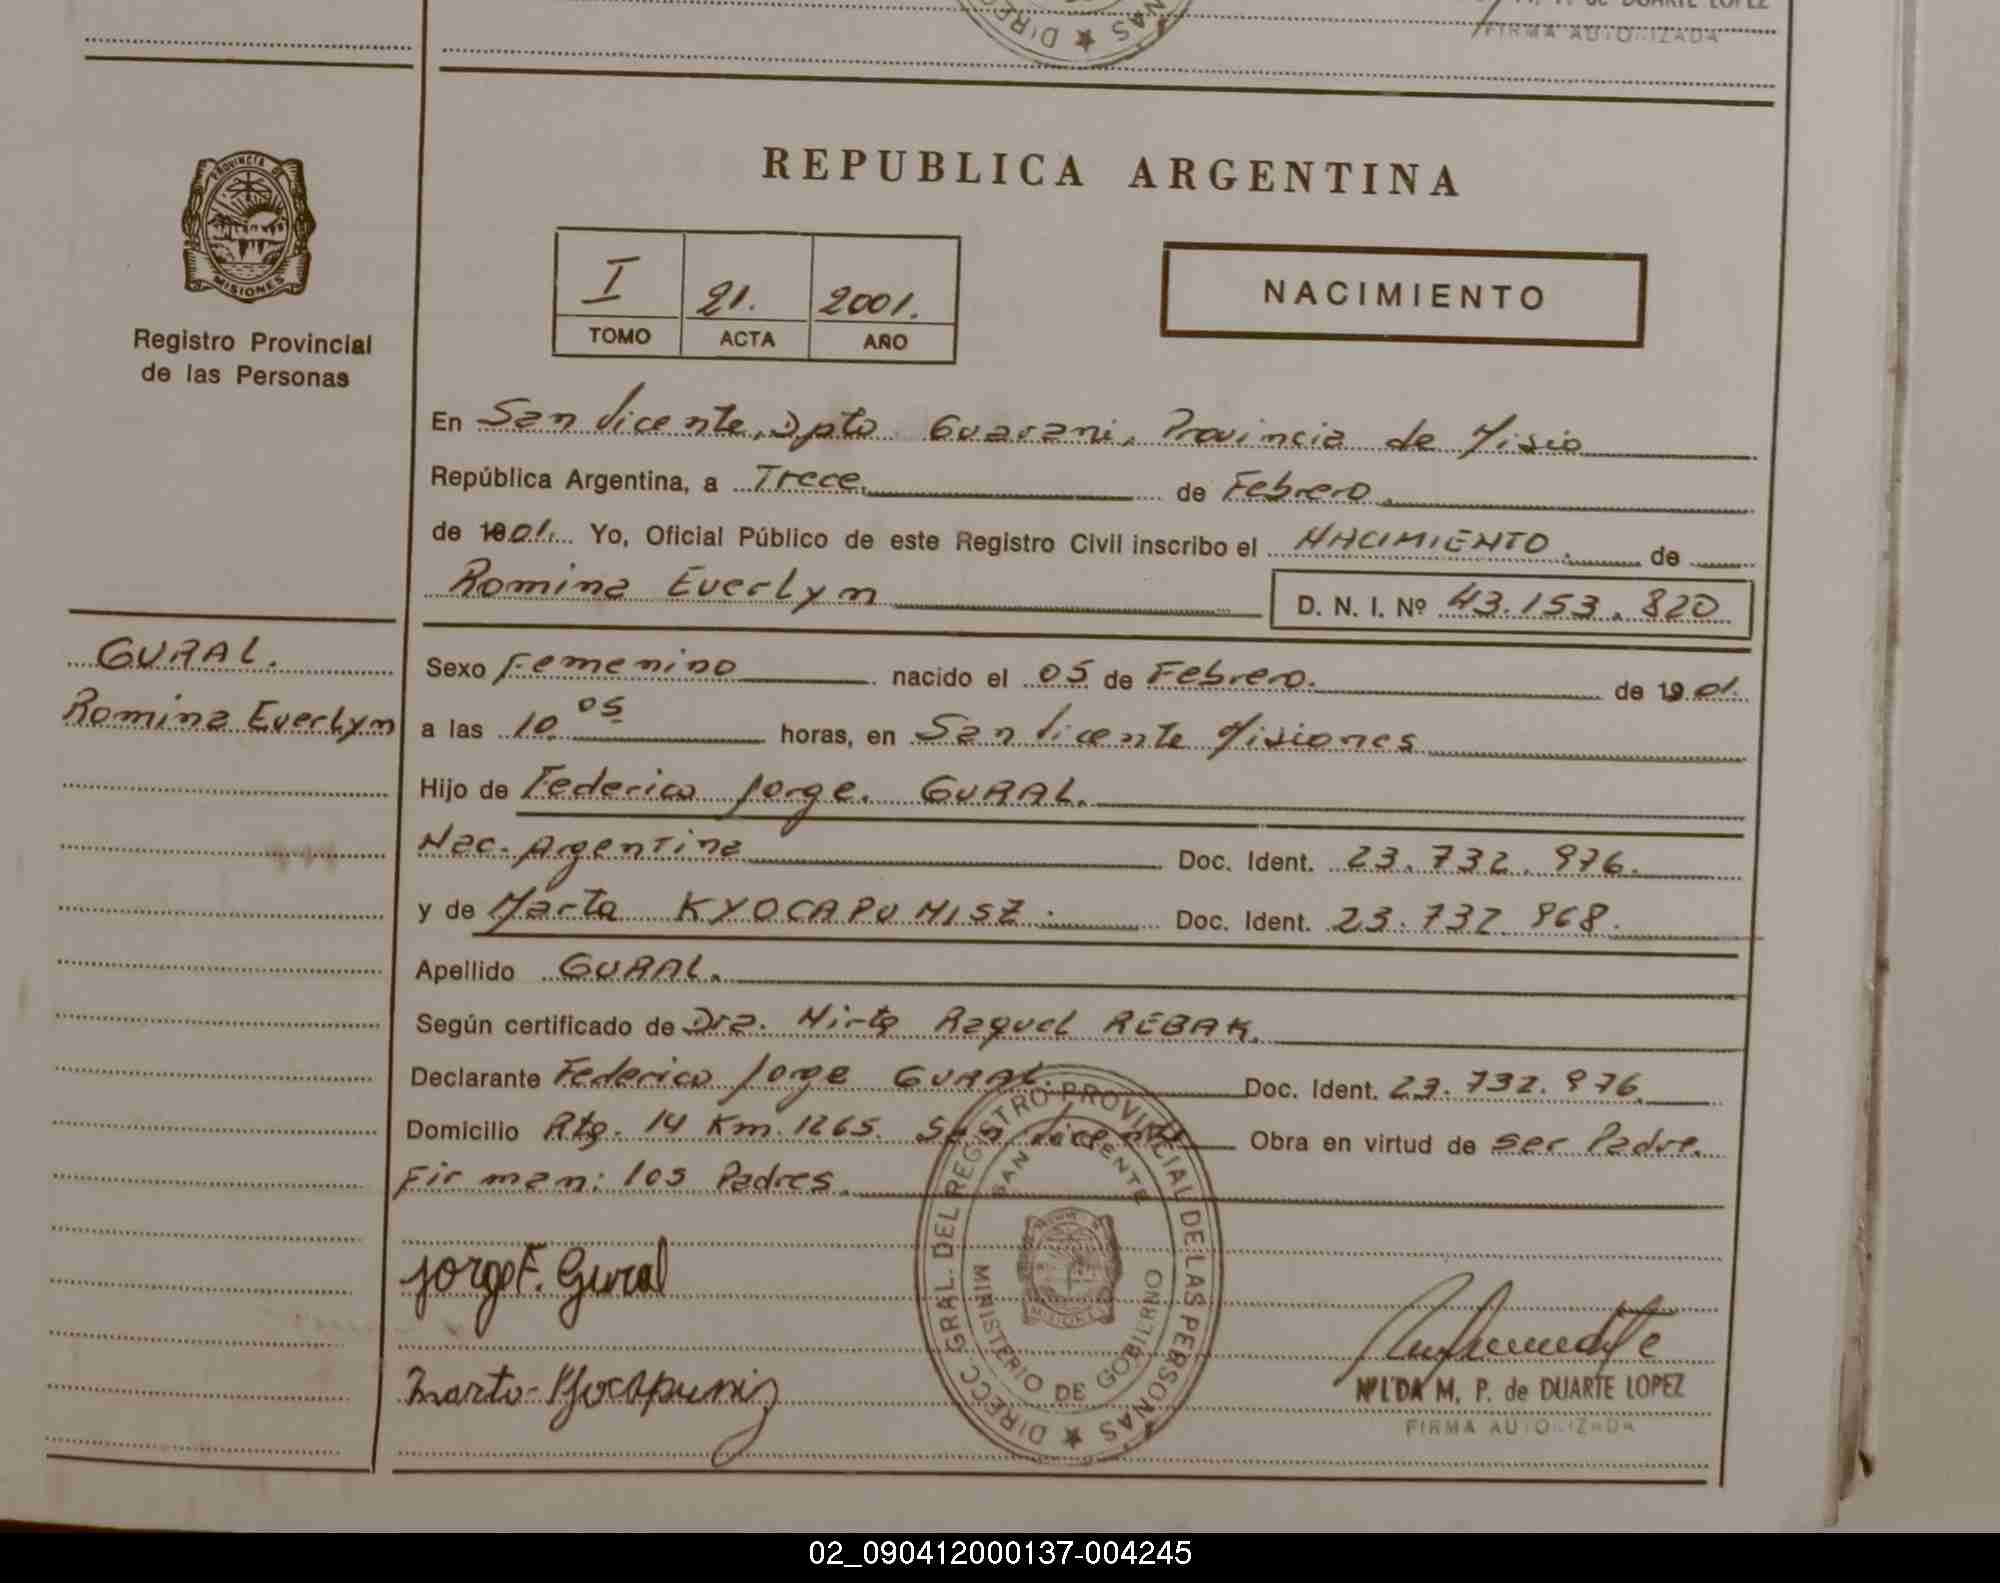 DUARTE LOPEZ
FIRMA AUTORIZADA
DIREC
NAS
REPUBLICA ARGENTINA
PROVINCIA DE
MISIONES
Registro Provincial
de las Personas
I 21. 2001.
TOMO ACTA AÑO
NACIMIENTO
En San Vicente, Dpto Guarani, Provincia de Misio
República Argentina, a Trece de Febrero.
de 1901. Yo, Oficial Público de este Registro Civil inscribo el NACIMIENTO. de
Romina Everlyn D. N. I. Nº 43.153.820
GURAL.
Romina Everlyn
Sexo Femenino nacido el 05 de Febrero. de 19 01.
a las 10 05 horas, en San Vicente Misiones
Hijo de Federico Jorge. GURAL.
Nac. Argentina Doc. Ident. 23.732.976.
y de Marta KYOCAPUNISZ. Doc. Ident. 23.732 968.
Apellido GURAL.
Según certificado de Dra. Mirta Raquel REBAK.
Declarante Federico Jorge GURAL. Doc. Ident. 23.732.976.
Domicilio Rta. 14 Km. 1265. San Vicente Obra en virtud de ser Padre.
Firman: los Padres.
Jorge F. Gural
DIRECC. GRAL. DEL REGISTRO PROVINCIAL DE LAS PERSONAS
SAN VICENTE
MINISTERIO DE GOBIERNO
M. P. de DUARTE LOPEZ
FIRMA AUTORIZADA
02_090412000137-004245